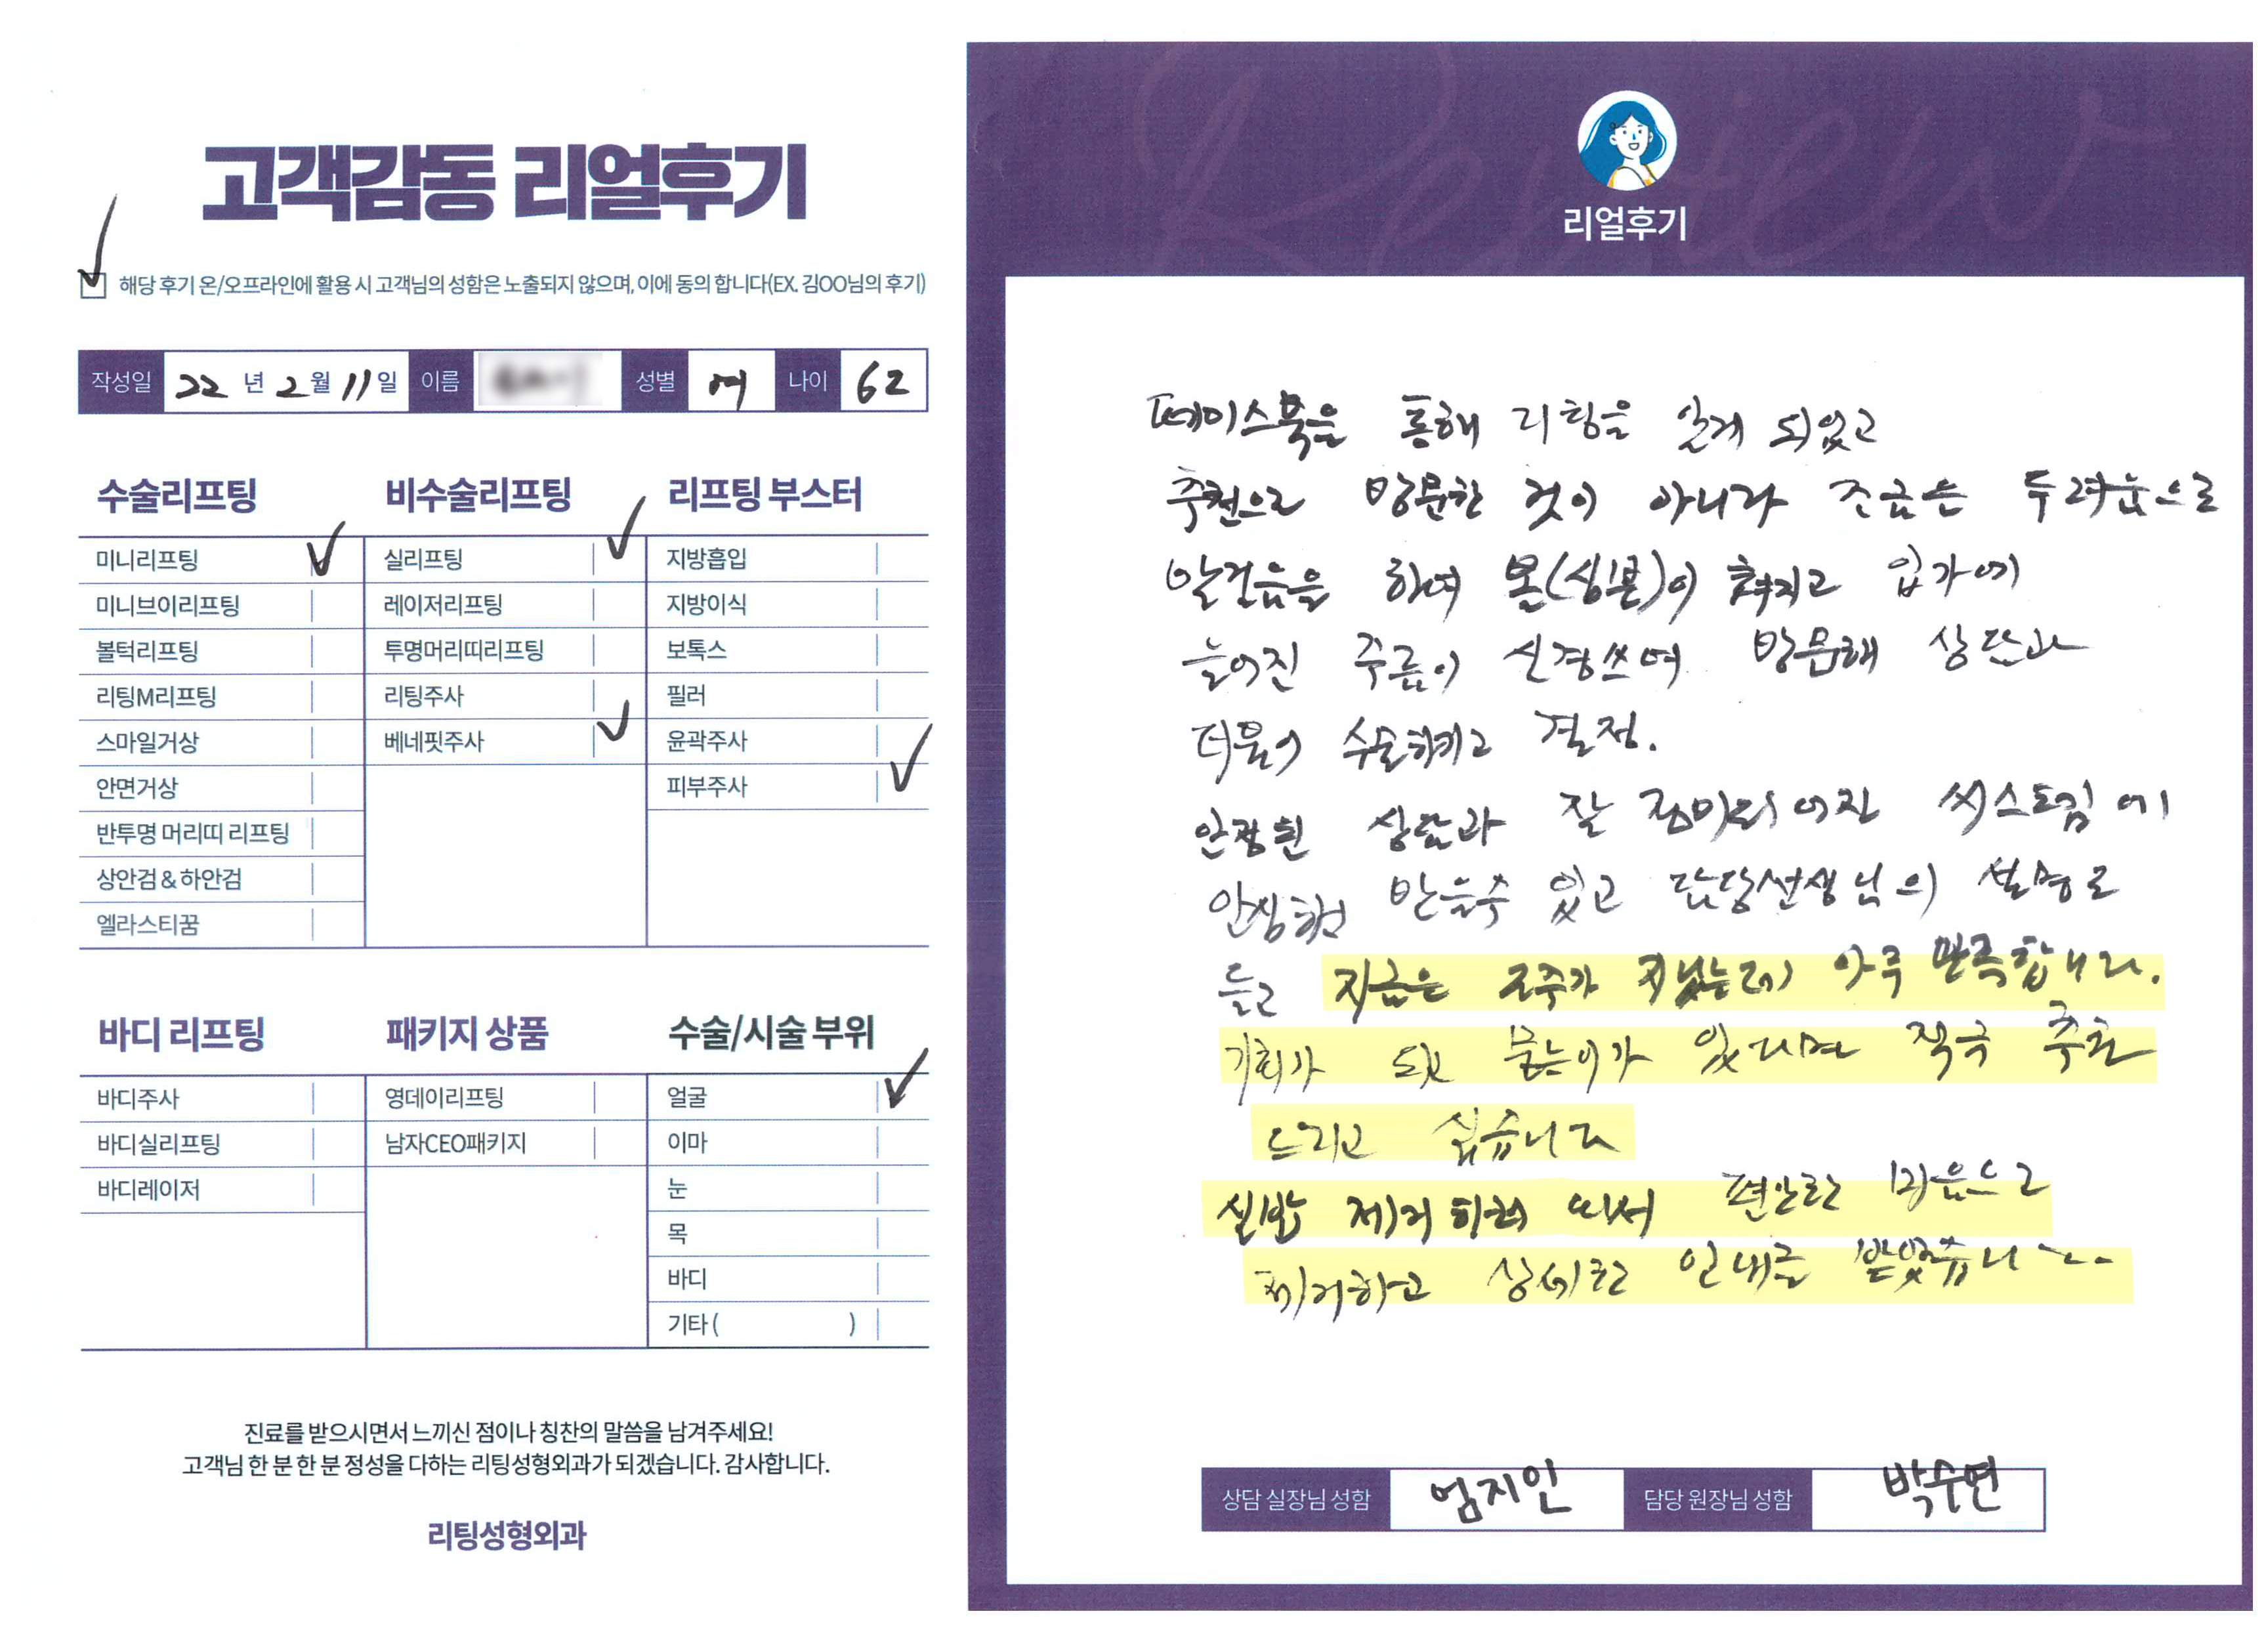 고객감동 리얼후기
해당 후기 온/오프라인에 활용 시 고객님의 성함은 노출되지 않으며, 이에 동의 합니다(EX. 김OO님의 후기)
작성일 22 년 2 월 11 일 이름 성별 여 나이 62
수술리프팅
미니리프팅
미니브이리프팅
볼턱리프팅
리팅M리프팅
스마일거상
안면거상
반투명 머리띠 리프팅
상안검 & 하안검
엘라스티꿈
비수술리프팅
실리프팅
레이저리프팅
투명머리띠리프팅
리팅주사
베네핏주사
리프팅 부스터
지방흡입
지방이식
보톡스
필러
윤곽주사
피부주사
바디 리프팅
바디주사
바디실리프팅
바디레이저
패키지 상품
영데이리프팅
남자CEO패키지
수술/시술 부위
얼굴
이마
눈
목
바디
기타 ( )
진료를 받으시면서 느끼신 점이나 칭찬의 말씀을 남겨주세요!
고객님 한 분 한 분 정성을 다하는 리팅성형외과가 되겠습니다. 감사합니다.
리팅성형외과
Review
리얼후기
페이스북을 통해 리팅을 알게 되었고
추천으로 방문한 것이 아니라 조금은 두려움으로
발걸음을 하여 볼(심부볼)이 쳐지고 입가에
늘어진 주름이 신경쓰여 방문해 상담과
더불어 수술하기고 결정.
안정된 상담과 잘 정비되어진 씨스템에
안심하고 받을수 있고 담당선생님의 설명도
듣고 지금은 2주가 지났는데 아주 만족합니다.
기회가 되서 묻는이가 있다면 적극 추천
드리고 싶습니다
실밥 제거하러 와서 편안한 마음으로
제거하고 상세한 안내를 받았습니다..
상담 실장님 성함 엄지인 담당 원장님 성함 박수연